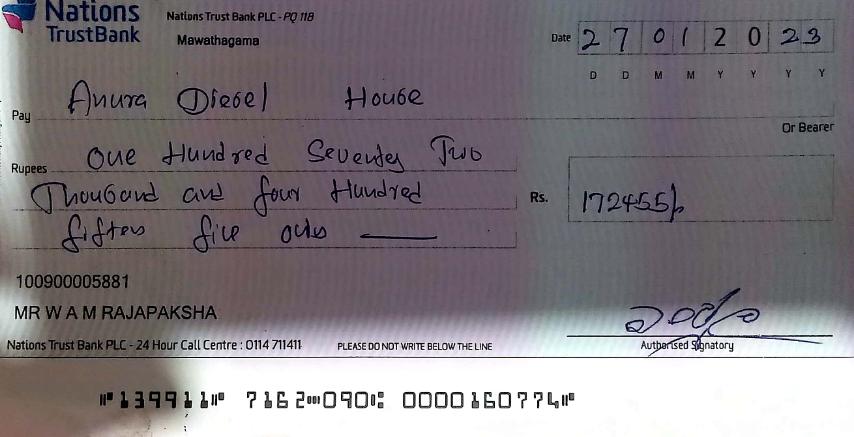 Nations
TrustBank
Nations Trust Bank PLC - PQ 118
Mawathagama
Date 2 7 0 1 2 0 2 3
D D M M Y Y Y Y
Pay Anura Diesel House
Or Bearer
Rupees One Hundred Seventy Two
Thousand and four Hundred
fifty five only
Rs. 172455/-
100900005881
MR W A M RAJAPAKSHA
Authorised Signatory
Nations Trust Bank PLC - 24 Hour Call Centre : 0114 711411 PLEASE DO NOT WRITE BELOW THE LINE
⑈139911⑈ 7162⑉090⑆ 0000160774⑈